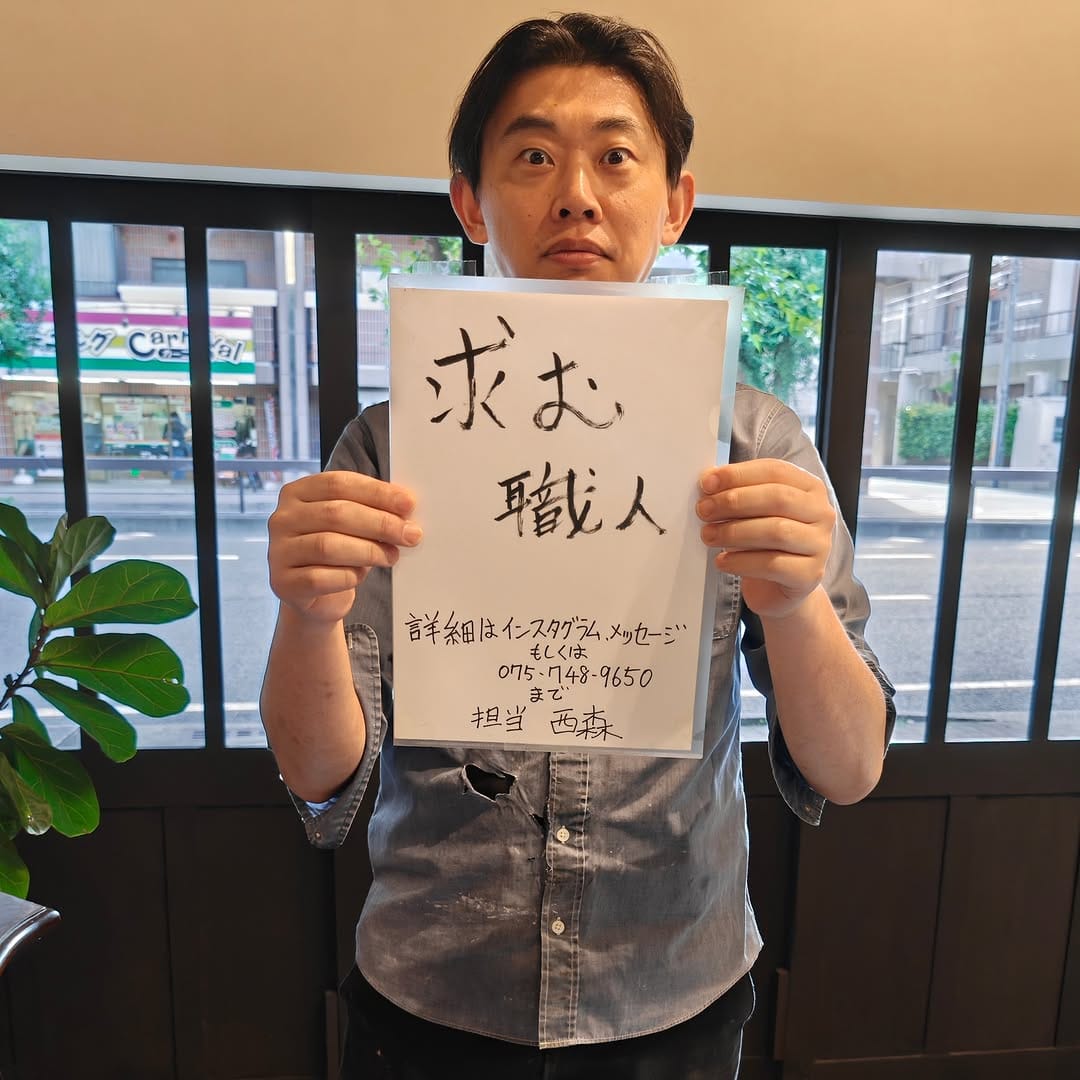 ング Carnival
求む
職人
詳細はインスタグラム、メッセージ
もしくは
075-748-9650
まで
担当 西森